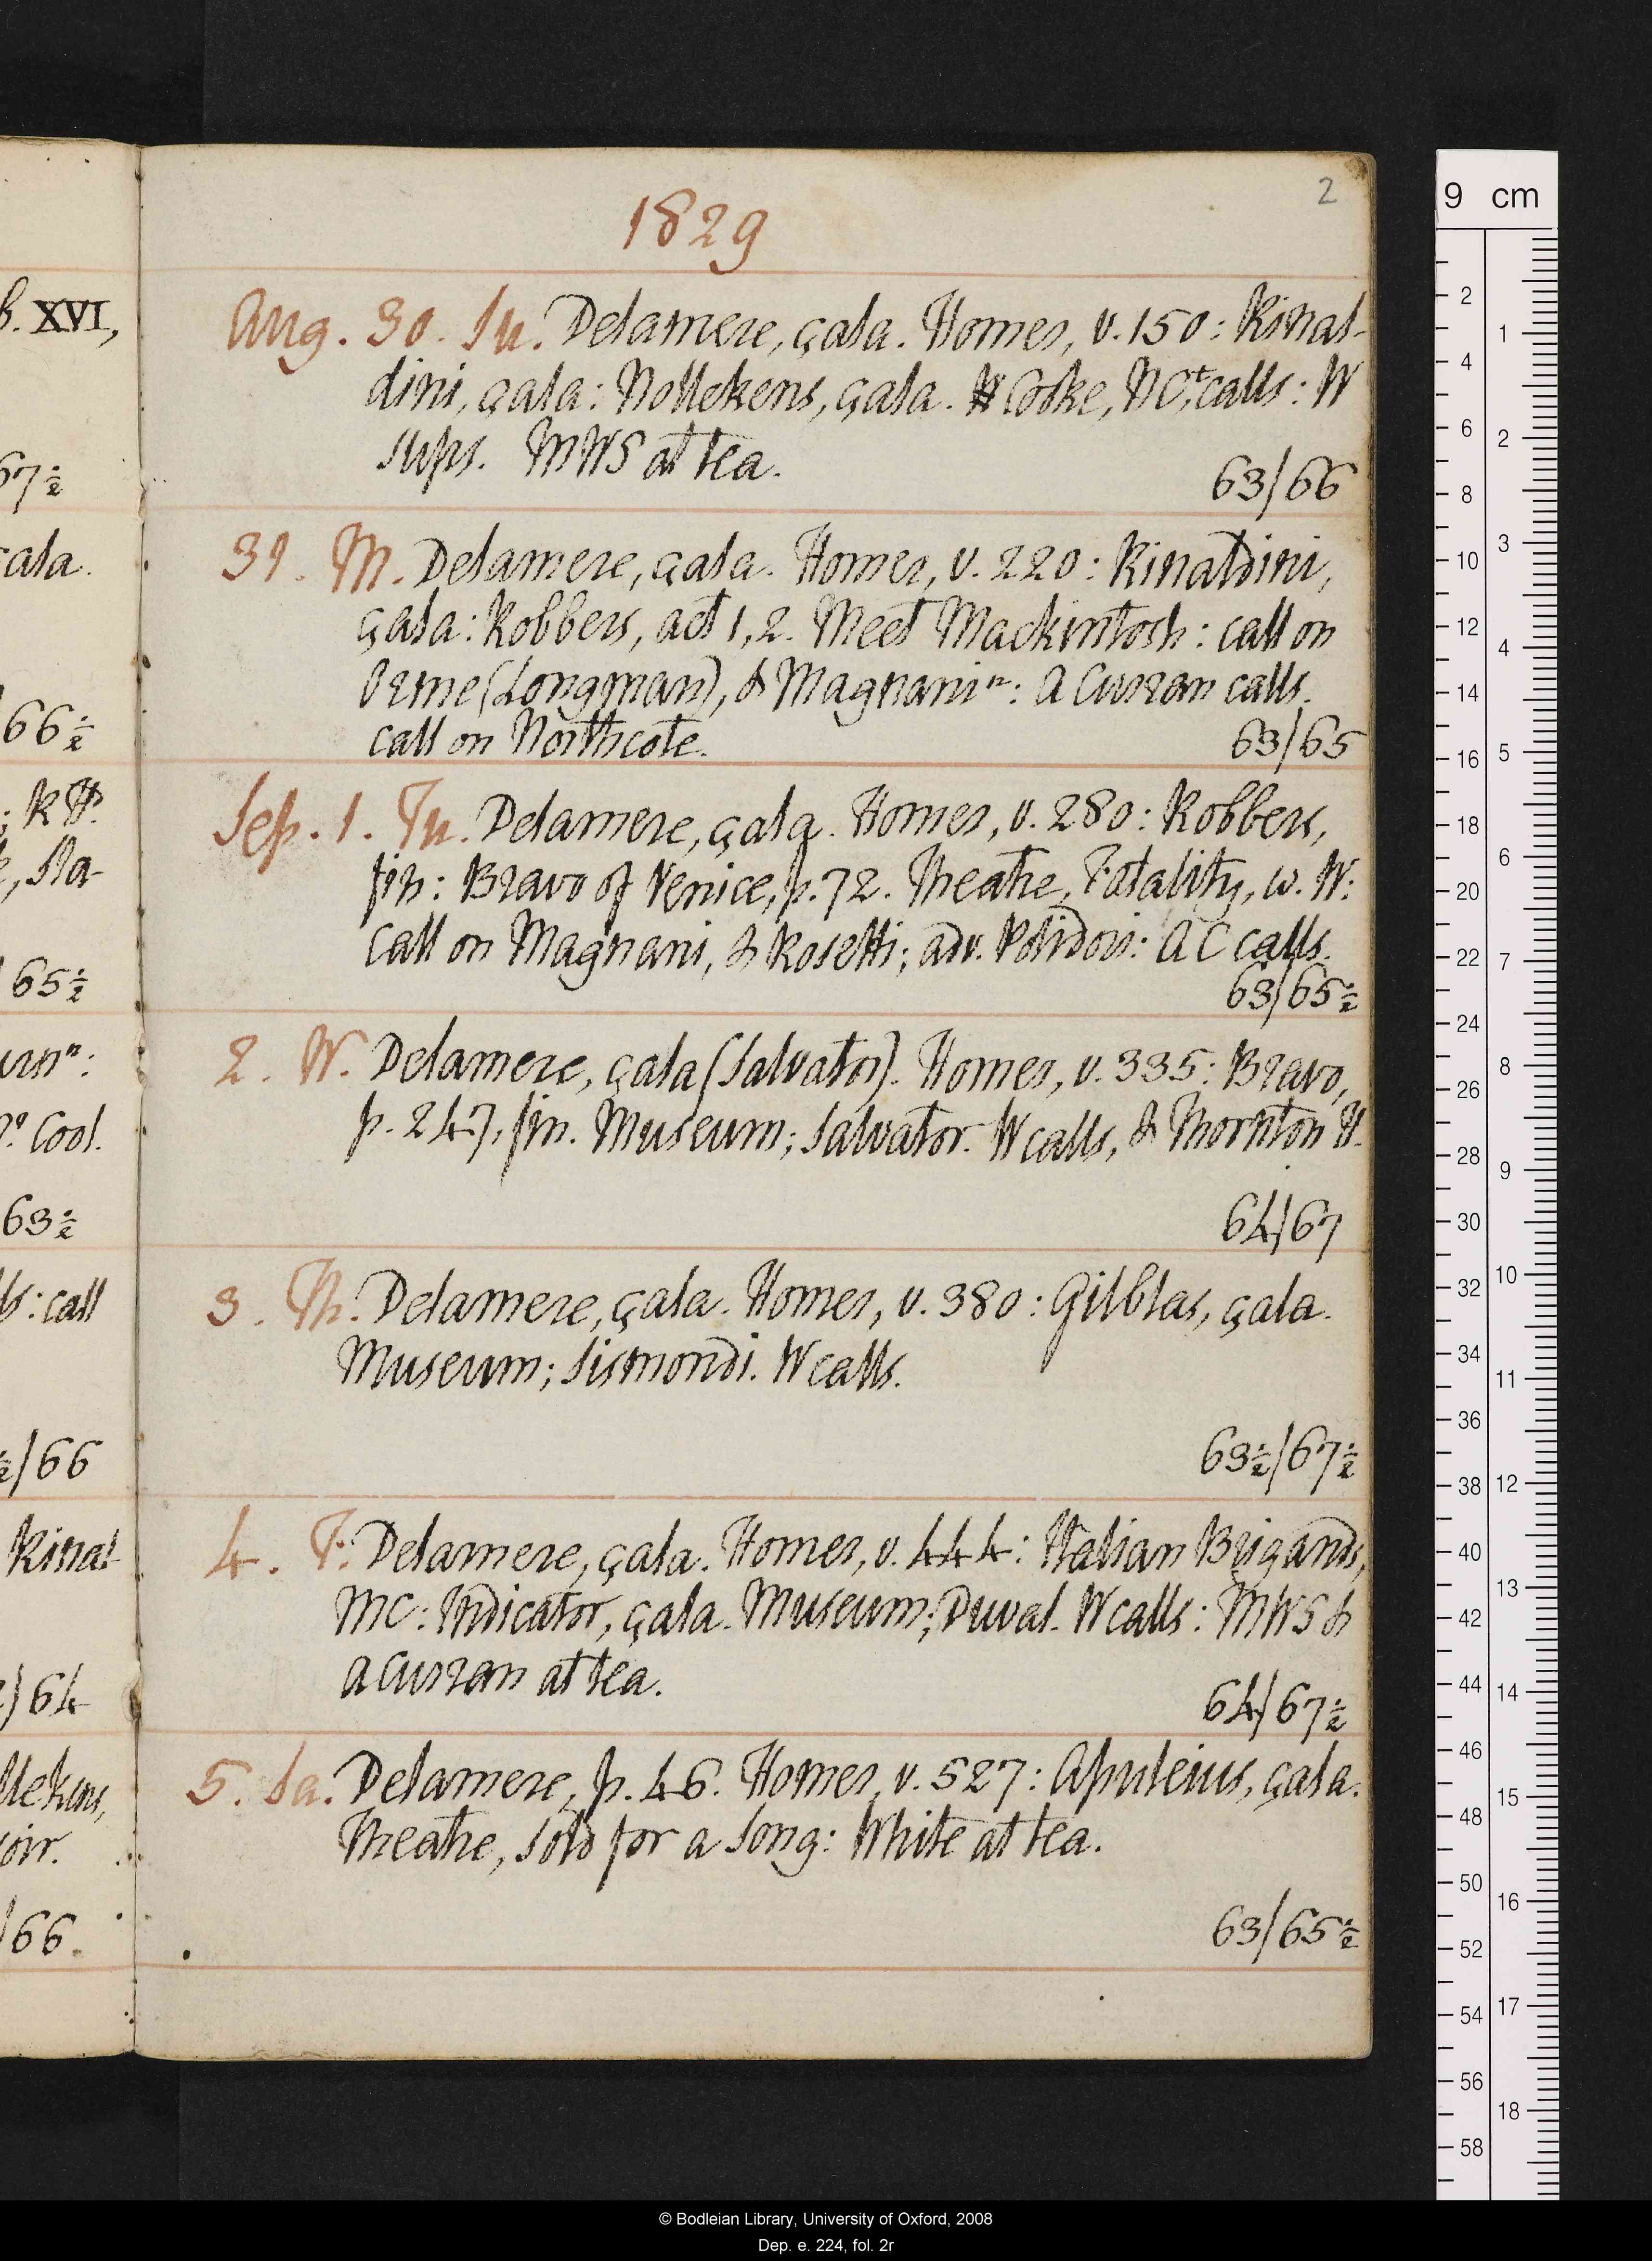 2
1829
b. XVI,
67½
cala.
66½
; k H.
k, Na-
65½
urnⁿ:
nº Cool.
63½
ls: call
½/66
Rinal
2)64
llekens,
oir.
/66.
Aug. 30. Su. Delamere, çala. Homer, v. 150: Rinal-
dini, çala: Nollekens, çala. W Cooke, NCt, calls: W
sups. MWS at tea.
63/66
31. M. Delamere, çala. Homer, v. 220: Rinaldini,
çala: Robbers, act 1, 2. Meet Mackintosh: call on
Orme (Longman), & Magnani ⁿ: A Curran calls.
call on Northcote.
63/65
Sep. 1. Tu. Delamere, çala. Homer, v. 280: Robbers,
fin: Bravo of Venice, p. 72. Theatre, Fatality, w. W:
call on Magnani, & Rosetti; adv. Polidori: A C calls.
63/65½
2. W. Delamere, çala (Salvator). Homer, v. 335: Bravo,
p. 247, fin. Museum; Salvator. W calls, & Thornton H.
64/67
3. Th. Delamere, çala. Homer, v. 380: Gilblas, çala.
Museum; Sismondi. W calls.
63½/67½
4. F. Delamere, çala. Homer, v. 444: Italian Brigands,
MC: Indicator, çala. Museum; Duval. W calls: MWS &
A Curran at tea.
64/67½
5. Sa. Delamere, p. 46. Homer, v. 527: Apuleius, çala.
Theatre, Sold for a Song: White at tea.
63/65½
9 cm
2
4
6
8
10
12
14
16
18
20
22
24
26
28
30
32
34
36
38
40
42
44
46
48
50
52
54
56
58
1
2
3
4
5
6
7
8
9
10
11
12
13
14
15
16
17
18
© Bodleian Library, University of Oxford, 2008
Dep. e. 224, fol. 2r